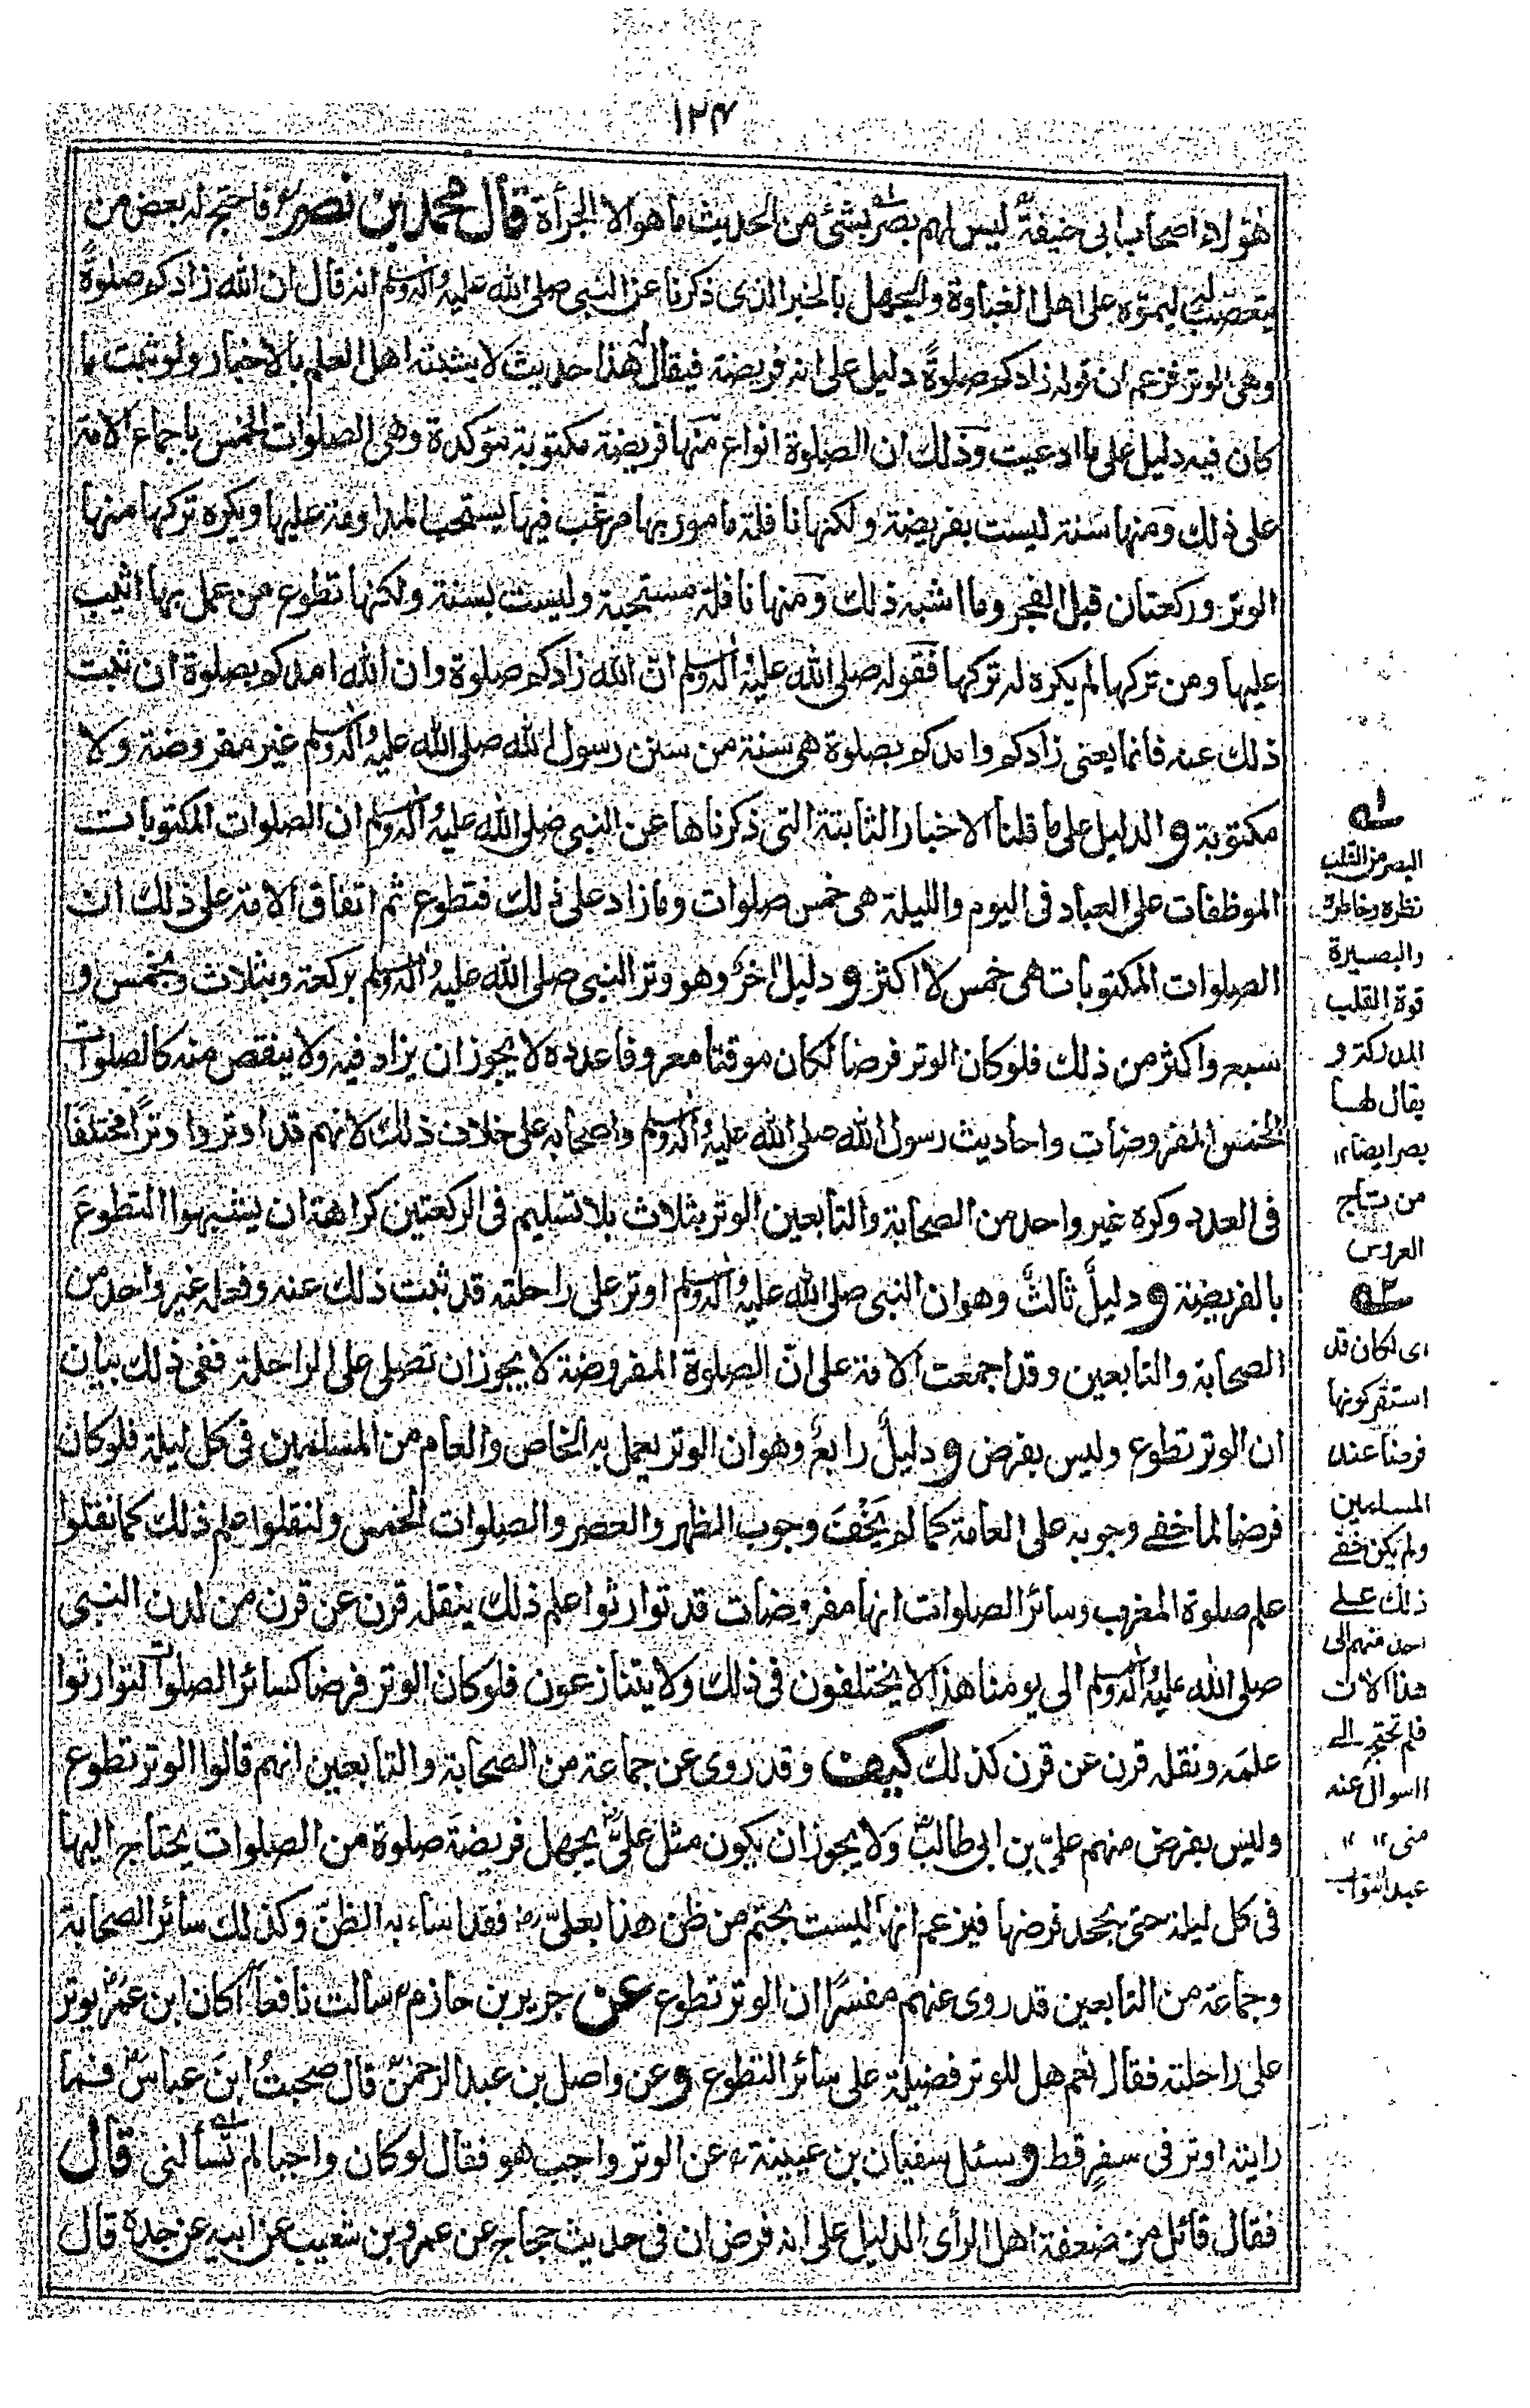 ۱۲۴
هؤلاء اصحاب ابی حنیفة لیس لهم بصر بشئ من الحدیث ما هو الا الجرأة قال محمد بن نصر فاحتج له بعض من
یتعصب له لیموه علی اهل الغباوة والجهل بالخبر الذی ذکرنا عن النبی صلی الله علیه وآله وسلم انه قال ان الله زادکم صلوةً
وهی الوتر فزعم ان قوله زادکم صلوةً دلیل علی انه فریضة فیقال له هذا حدیث لا یثبته اهل العلم بالاخبار ولو ثبت ما
کان فیه دلیل علی ما ادعیت وذلک ان الصلوة انواع منها فریضة مکتوبة مؤکدة وهی الصلوات الخمس باجماع الامة
علی ذلک ومنها سنة لیست بفریضة ولکنها نافلة مامور بها مرغب فیها یستحب المداومة علیها ویکره ترکها منها
الوتر ورکعتان قبل الفجر وما اشبه ذلک ومنها نافلة مستحبة ولیست بسنة ولکنها تطوع من عمل بها اثیب
علیها ومن ترکها لم یکره له ترکها فقوله صلی الله علیه وآله وسلم ان الله زادکم صلوة وان الله امدکم بصلوة ان ثبت
ذلک عنه فانما یعنی زادکم وامدکم بصلوة هی سنة من سنن رسول الله صلی الله علیه وآله وسلم غیر مفروضة ولا
مکتوبة و الدلیل علی ما قلنا الاخبار الثابتة التی ذکرناها عن النبی صلی الله علیه وآله وسلم ان الصلوات المکتوبات
الموظفات علی العباد فی الیوم واللیلة هی خمس صلوات وما زاد علی ذلک فتطوع ثم اتفاق الامة علی ذلک ان
الصلوات المکتوبات هی خمس لا اکثر و دلیل اخر وهو وتر النبی صلی الله علیه وآله وسلم برکعة وبثلاث وبخمس و
سبع واکثر من ذلک فلو کان الوتر فرضا لکان موقتا معروفا عدده لا یجوز ان یزاد فیه ولا ینقص منه کالصلوات
الخمس المفروضات واحادیث رسول الله صلی الله علیه وآله وسلم واصحابه علی خلاف ذلک لانهم قد اوتروا وترًا مختلفًا
فی العدد وکره غیر واحد من الصحابة والتابعین الوتر بثلاث بلا تسلیم فی الرکعتین کراهة ان یشبهوا التطوعَ
بالفریضة و دلیلٌ ثالثٌ وهو ان النبی صلی الله علیه وآله وسلم اوتر علی راحلته قد ثبت ذلک عنه وفعله غیر واحد من
الصحابة والتابعین وقد اجمعت الامة علی انّ الصلوة المفروضة لا یجوز ان تصلی علی الراحلة ففی ذلک بیان
ان الوتر تطوع ولیس بفرض و دلیلٌ رابعٌ وهو ان الوتر یعمل به الخاص والعام من المسلمین فی کل لیلة فلو کان
فرضا لما خفی وجوبه علی العامة کما لم یَخْفَ وجوب الظهر والعصر والصلوات الخمس ولنقلوا علم ذلک کما نقلوا
علم صلوة المغرب وسائر الصلوات انها مفروضات قد توارثوا علم ذلک ینقله قرن عن قرن من لدن النبی
صلی الله علیه وآله وسلم الی یومنا هذا لا یختلفون فی ذلک ولا یتنازعون فلو کان الوتر فرضا کسائر الصلوات لتوارثوا
علمَه ونقله قرن عن قرن کذلک کیف وقد روی عن جماعة من الصحابة والتابعین انهم قالوا الوتر تطوع
ولیس بفرض منهم علیّ بن ابی طالب ولا یجوز ان یکون مثل علیّ یجهل فریضةَ صلوة من الصلوات یحتاج الیها
فی کل لیلة حتی یجحد فرضها فیزعم انها لیست بحتم من ظن هذا بعلیّ فقد اساء به الظنّ وکذلک سائر الصحابة
وجماعة من التابعین قد روی عنهم مفسرًا ان الوتر تطوع عن جریر بن حازم سالت نافعا اکان ابن عمر یوتر
علی راحلته فقال نعم هل للوتر فضیلة علی سائر التطوع وعن واصل بن عبد الرحمٰن قال صحبتُ ابنَ عباس فما
رایته اوتر فی سفرٍ قط و سئل سفیان بن عیینة عن الوتر واجب هو فقال لو کان واجبا لم تسألنی قال
فقال قائل من ضعفة اهل الرأی الدلیل علی انه فرض ان فی حدیث حجاج عن عمرو بن شعیب عن ابیه عن جده قال
۱ه
البصر من القلب
نظره وخاطره
والبصیرة
قوة القلب
المدرکة و
یقال لها
بصر ایضا ۱۲
من تاج
العروس
۲ه
ای لکان قد
استقر کونها
فرضا عند
المسلمین
ولم یکن خفی
ذلک علی
احد منهم الی
هذا الان
فلم تحتج الی
السوال عنه
منی ۱۲
عبد التواب